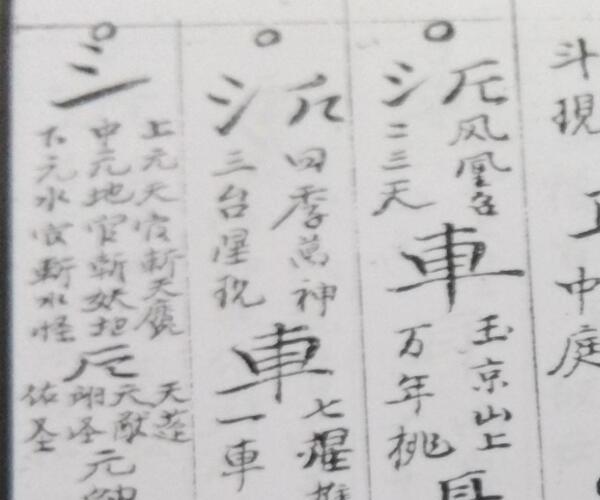 斗現
中庭
风凰
二三天
車
玉京山上
万年桃
四季萬神
三台星現
車
七擢推
一車
上元天官斬天魔
中元地官斬妖
下元水官斬水怪
天蓬
天猷
翊圣
佑圣
元帥